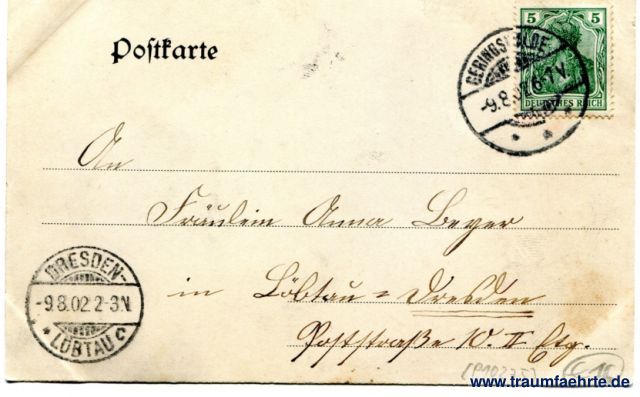 Postkarte
5 5
DEUTSCHES REICH
GERINGSWALDE
-9.8.02. 6-7V.
An
Fräulein Anna Beyer
in Löbtau = Dresden
Poststraße 10. II Etg.
DRESDEN-
-9.8.02.2-3N
* LÖBTAU c
www.traumfaehrte.de